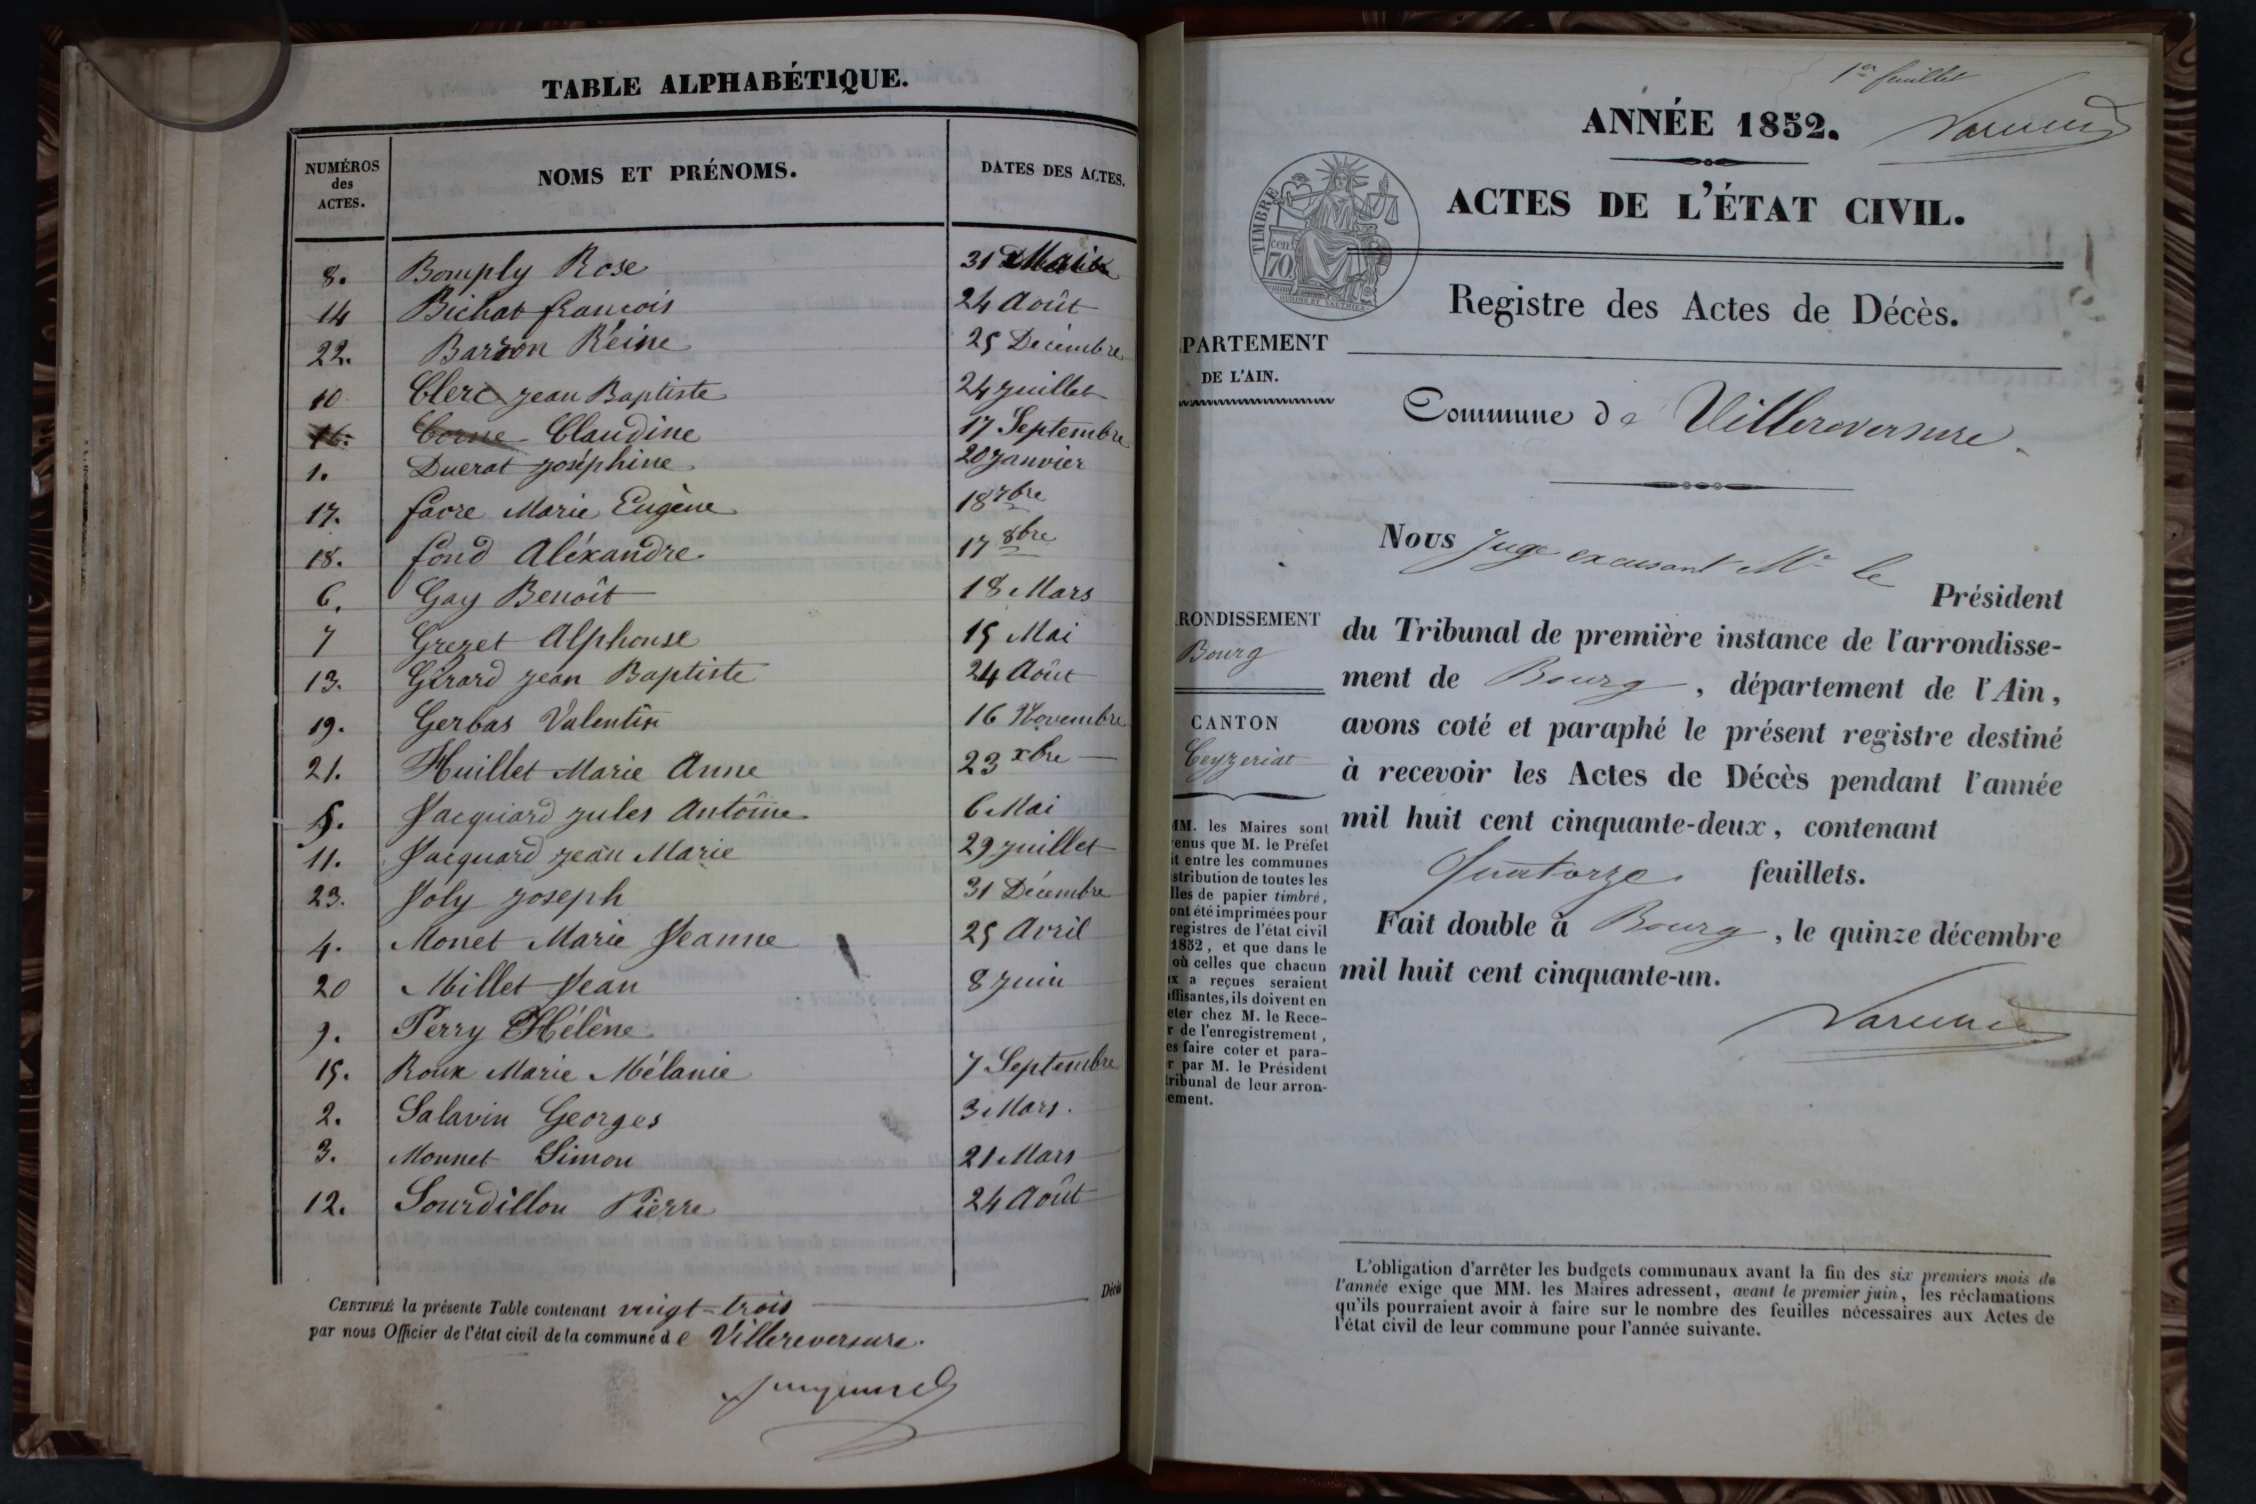 TABLE ALPHABÉTIQUE.
NUMÉROS des ACTES. NOMS ET PRÉNOMS. DATES DES ACTES.
8. Bomply Rose 31 Mai
14 Bichat françois 24 Août
22. Barron Réine 25 Décembre
10 Clerc jean Baptiste 24 juillet
16. Corne Claudine 17 Septembre
1. Duerat joséphine 20 janvier
17. favre Marie Eugène 18 7bre
18. fond Aléxandre 17 8bre
6. Gay Benoît 18 Mars
7 Grezet Alphonse 15 Mai
13. Girard jean Baptiste 24 Août
19. Gerbas Valentin 16 Novembre
21. Huillet Marie Anne 23 xbre
5. Jacquard jules Antoine 6 Mai
11. Jacquard jean Marie 29 juillet
23. Joly joseph 31 Décembre
4. Monet Marie Jeanne 25 Avril
20 Millet Jean 8 juin
9. Perry Hélène
15. Roux Marie Mélanie 7 Septembre
2. Salavin Georges 3 Mars.
3. Monnet Simon 21 Mars
12. Sourdillon Pierre 24 Août
CERTIFIÉ la présente Table contenant vingt-trois Décès
par nous Officier de l'état civil de la commune de Villereversure.
1er feuillet
ANNÉE 1852.
TIMBRE
cen.
70
ACTES DE L'ÉTAT CIVIL.
Registre des Actes de Décès.
PARTEMENT
DE L'AIN.
Commune de Villereversure.
RONDISSEMENT
Bourg
CANTON
Ceyzeriat
MM. les Maires sont
enus que M. le Préfet
it entre les communes
stribution de toutes les
lles de papier timbré,
ont été imprimées pour
registres de l'état civil
1852, et que dans le
où celles que chacun
x a reçues seraient
ffisantes, ils doivent en
eter chez M. le Rece-
r de l'enregistrement,
es faire coter et para-
r par M. le Président
tribunal de leur arron-
ement.
Nous Juge excusant Mr le Président
du Tribunal de première instance de l'arrondisse-
ment de Bourg, département de l'Ain,
avons coté et paraphé le présent registre destiné
à recevoir les Actes de Décès pendant l'année
mil huit cent cinquante-deux, contenant
Quatorze feuillets.
Fait double à Bourg, le quinze décembre
mil huit cent cinquante-un.
L'obligation d'arrêter les budgets communaux avant la fin des six premiers mois de
l'année exige que MM. les Maires adressent, avant le premier juin, les réclamations
qu'ils pourraient avoir à faire sur le nombre des feuilles nécessaires aux Actes de
l'état civil de leur commune pour l'année suivante.